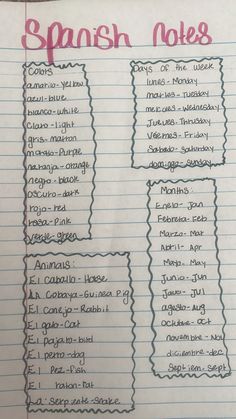 Spanish notes
Colors
amarilo-yellow
azul-blue
blanco-white
Claro-light
gris-matton
morado-Purple
naranja-orange
negro-black
oscuro-dark
rojo-red
rosa-Pink
verde-green
Animals:
El Caballo-Horse
LA Cobaya-Guinea Pig
El Conejo-Rabbit
El gato-Cat
El pajaro-bird
El perro-dog
El Pez-Fish
El raton-rat
La Serpente-snake
Days of the Week
lunes-Monday
martes-Tuesday
mercues-Wednesday
Jueves-Thrusday
Viernes-Friday
Sabado-saturday
domingo-sunday
Months:
Enelo-Jan
Febreta-Feb
Marzo-Mar
Abril-Apr
Mayo-May
Junio-Jun
Javo-Jul
agosto-Aug
Octubre-oct
noviembre-Nov
diciembre-dec
Septiem-sept